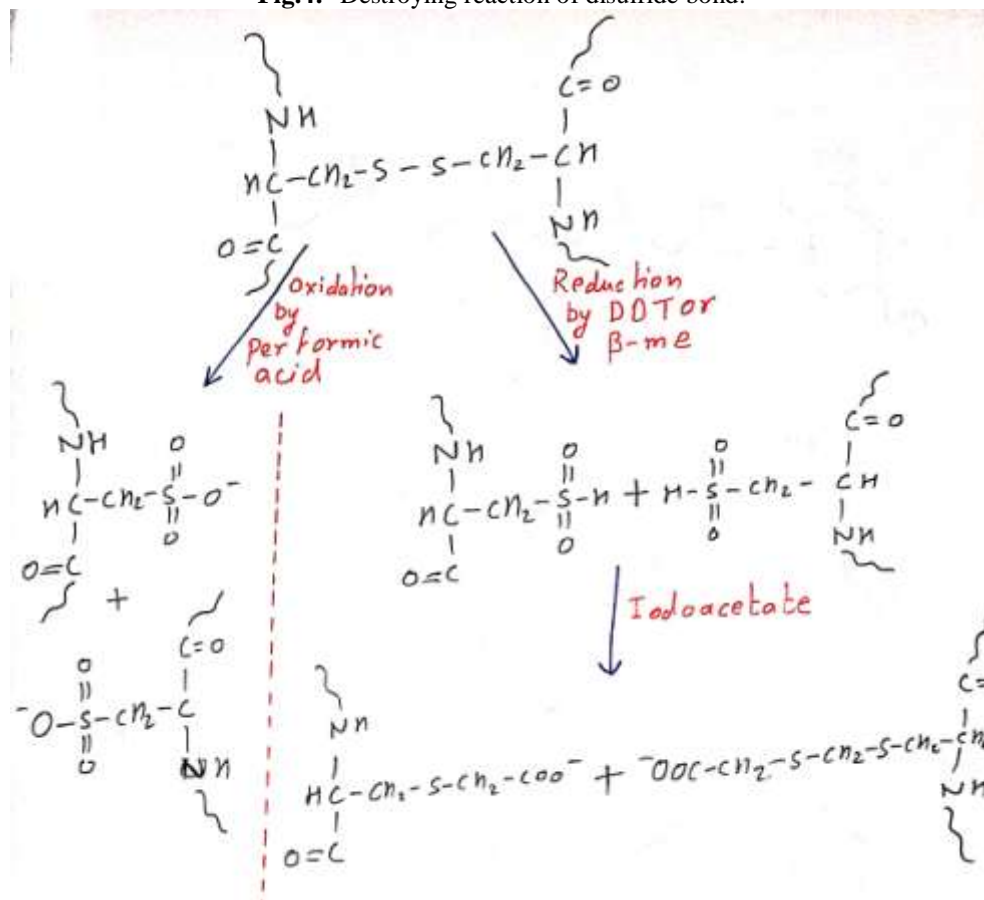 Destroying reaction of disulfide bond.
NH
HC-CH₂-S-S-CH₂-CH
O=C
C=O
NH
Oxidation
by
Performic
acid
Reduction
by DDT or
β-me
NH
HC-CH₂-S-O⁻
O
O
O=C
+
O
O
⁻O-S-CH₂-C
C=O
NH
NH
HC-CH₂-S-H + H-S-CH₂-CH
O
O
O
O
O=C
C=O
NH
Iodoacetate
NH
HC-CH₂-S-CH₂-COO⁻ + ⁻OOC-CH₂-S-CH₂-S-CH₂-CH
O=C
C=
NH